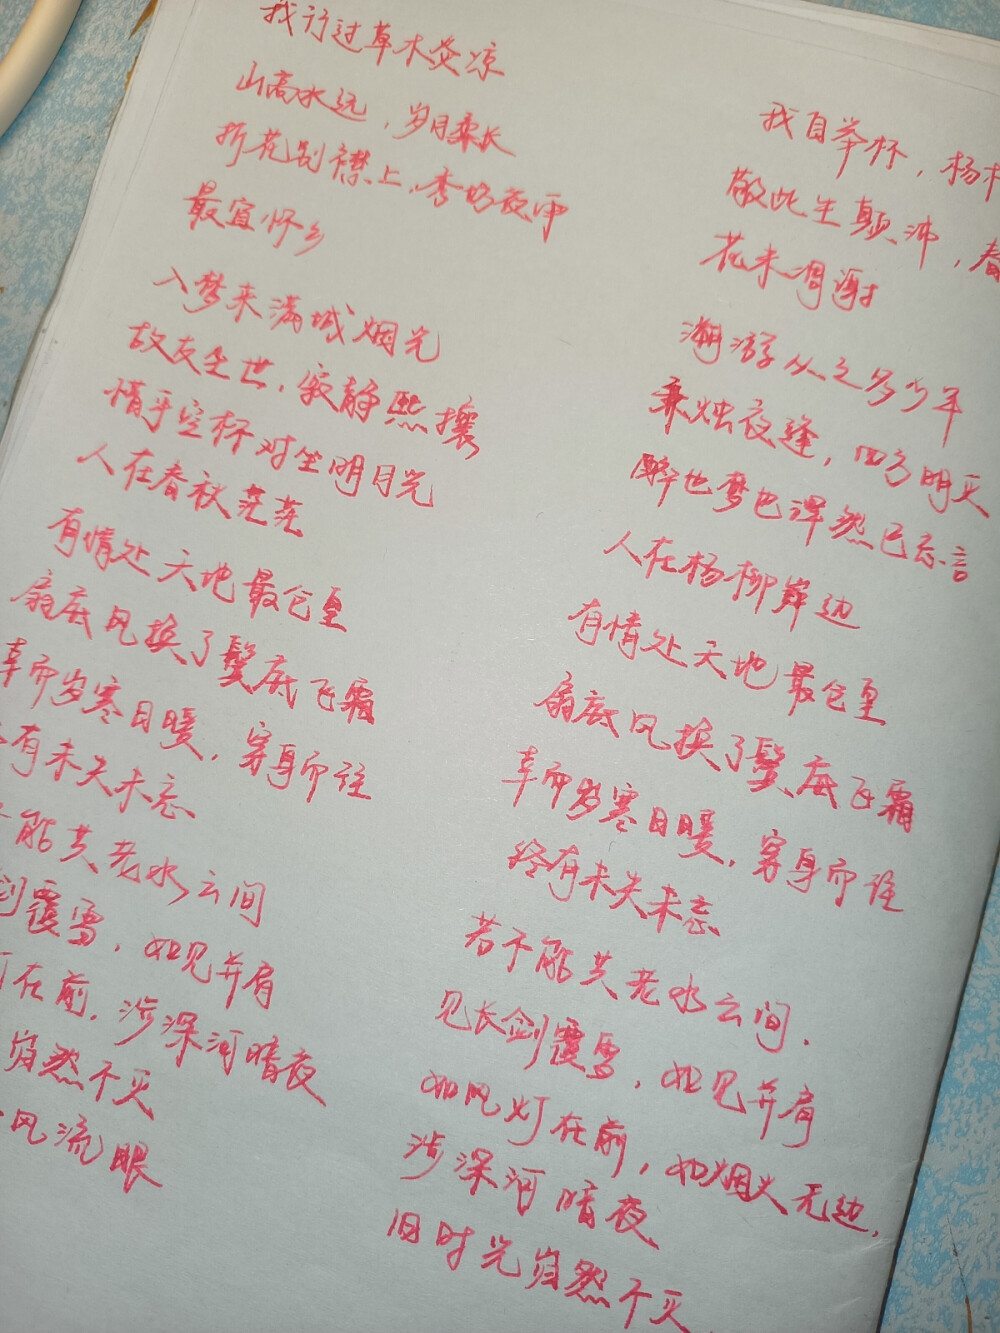 我行过草木炎凉
山高水远，岁月桑长
折花别襟上，秀场夜雨
最宜怀乡
入梦来满城烟光
故友尘世，寂静熙攘
情乎空杯对坐明月光
人在春秋茫茫
有情处天地最仓皇
扇底风换了鬓底飞霜
幸而岁寒日暖，穿身而往
有未失未忘
能共老水云间
剑覆雪，如见并肩
在前，涉深河暗夜
岿然不灭
风流眼
我自举杯，杨
敬此生颠沛，春
花未凋谢
溯游从之多少年
秉烛夜逢，四方明灭
醉也梦也浑然已忘言
人在杨柳岸边
有情处天地最仓皇
扇底风换了鬓底飞霜
幸而岁寒日暖，穿身而往
终有未失未忘
若干能共老水云间，
见长剑覆雪，如见并肩
如风灯在前，如烟火无边，
涉深河暗夜
旧时光岿然不灭，